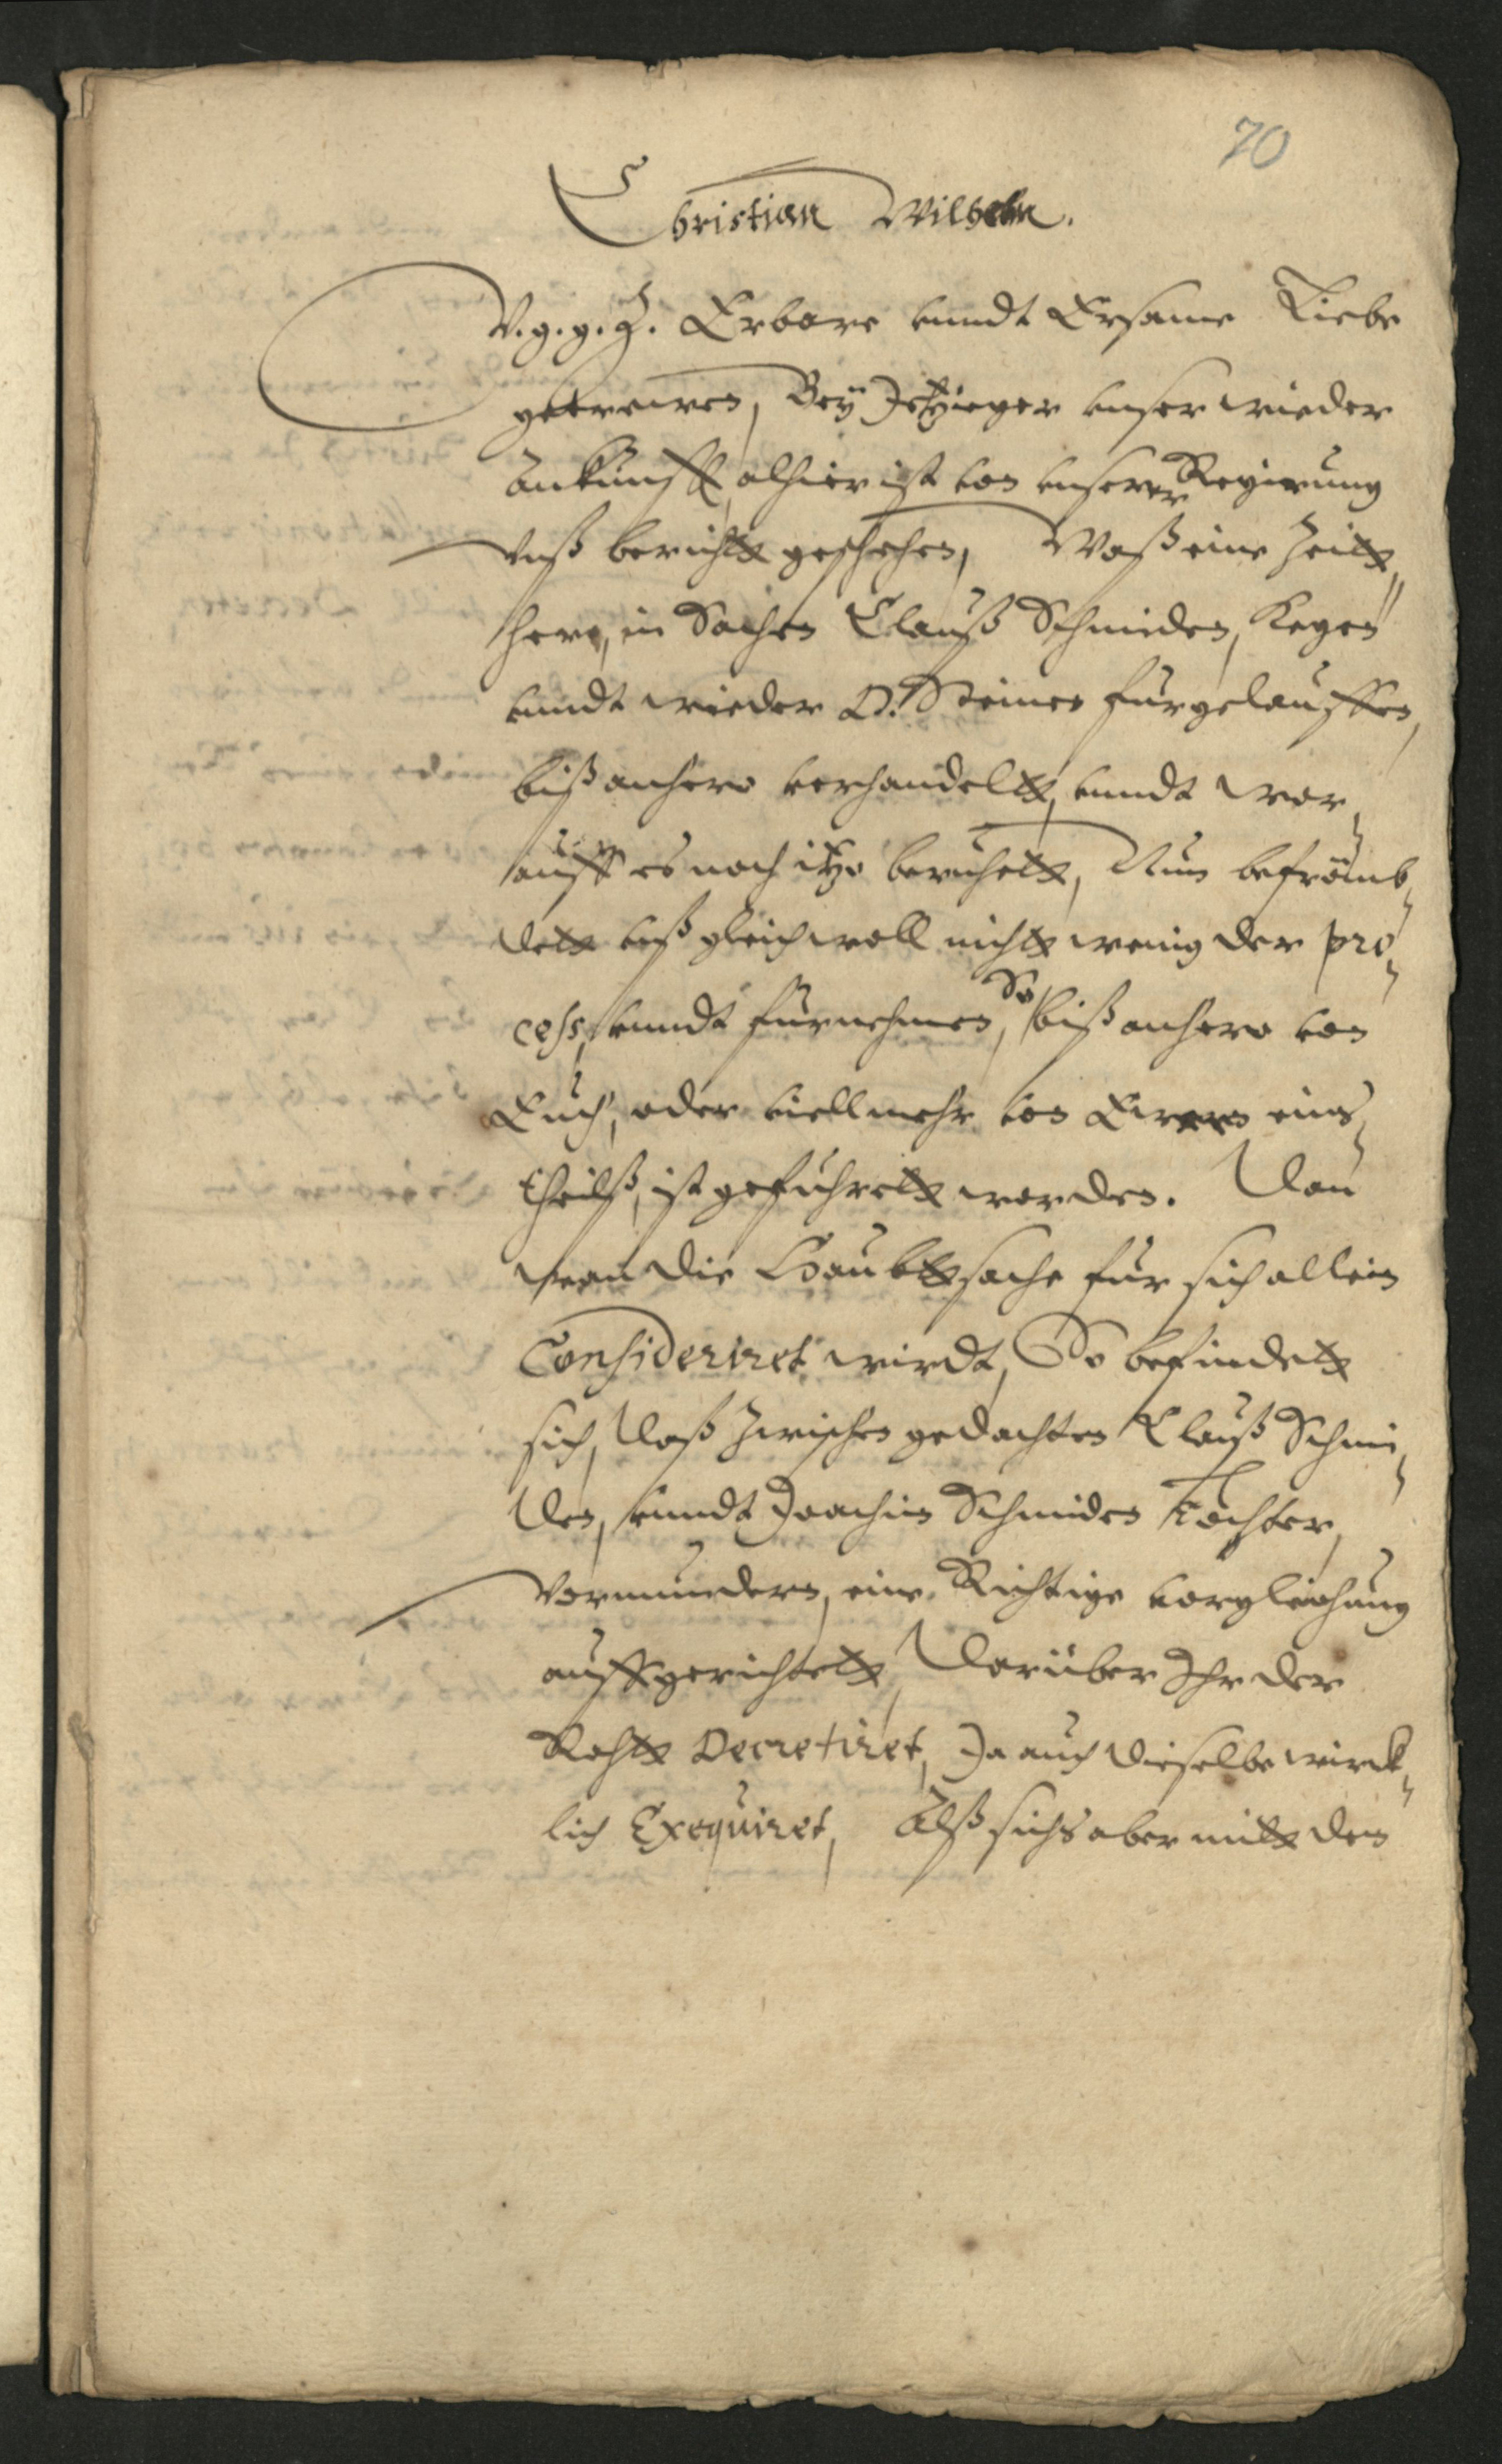 70
Christian Wilhelm.
V.g.g.Z. Erbare vnndt Ersame Liebe
getrewen, Bey Jtziger vnser wieder
Ankunfft, alhier ist von vnserer Regierung
vnß bericht geschehen, Waß eine Zeitt
hero, in Sachen Clauß Schmiden, Kegen
vnndt wieder D. Steinen fürgelauffen,
biß anhero verhandeltt, vnndt wor,
auff es noch itzo beruhett, Nun befrömb,
dett vnß gleichwoll nicht wenig der pro,
cess, vnndt fürnehmen, So biß anhero von
Euch, oder viellmehr von Ewren eins
theilß, ist geführett worden. Dan
wan die Haubttsache für sich allein
Consideriret wirdt, So befindett
sich, daß zwischen gedachten Clauß Schmi,
den, vnndt Joachim Schmiden Tochter,
Vormündern, eine Richtige vorgleichung
auffgerichtett, darüber Ihr der
Rahtt Decretiret, Ja auch dieselbe wirck,
lich Exequiret, Alß sichs aber mitt den